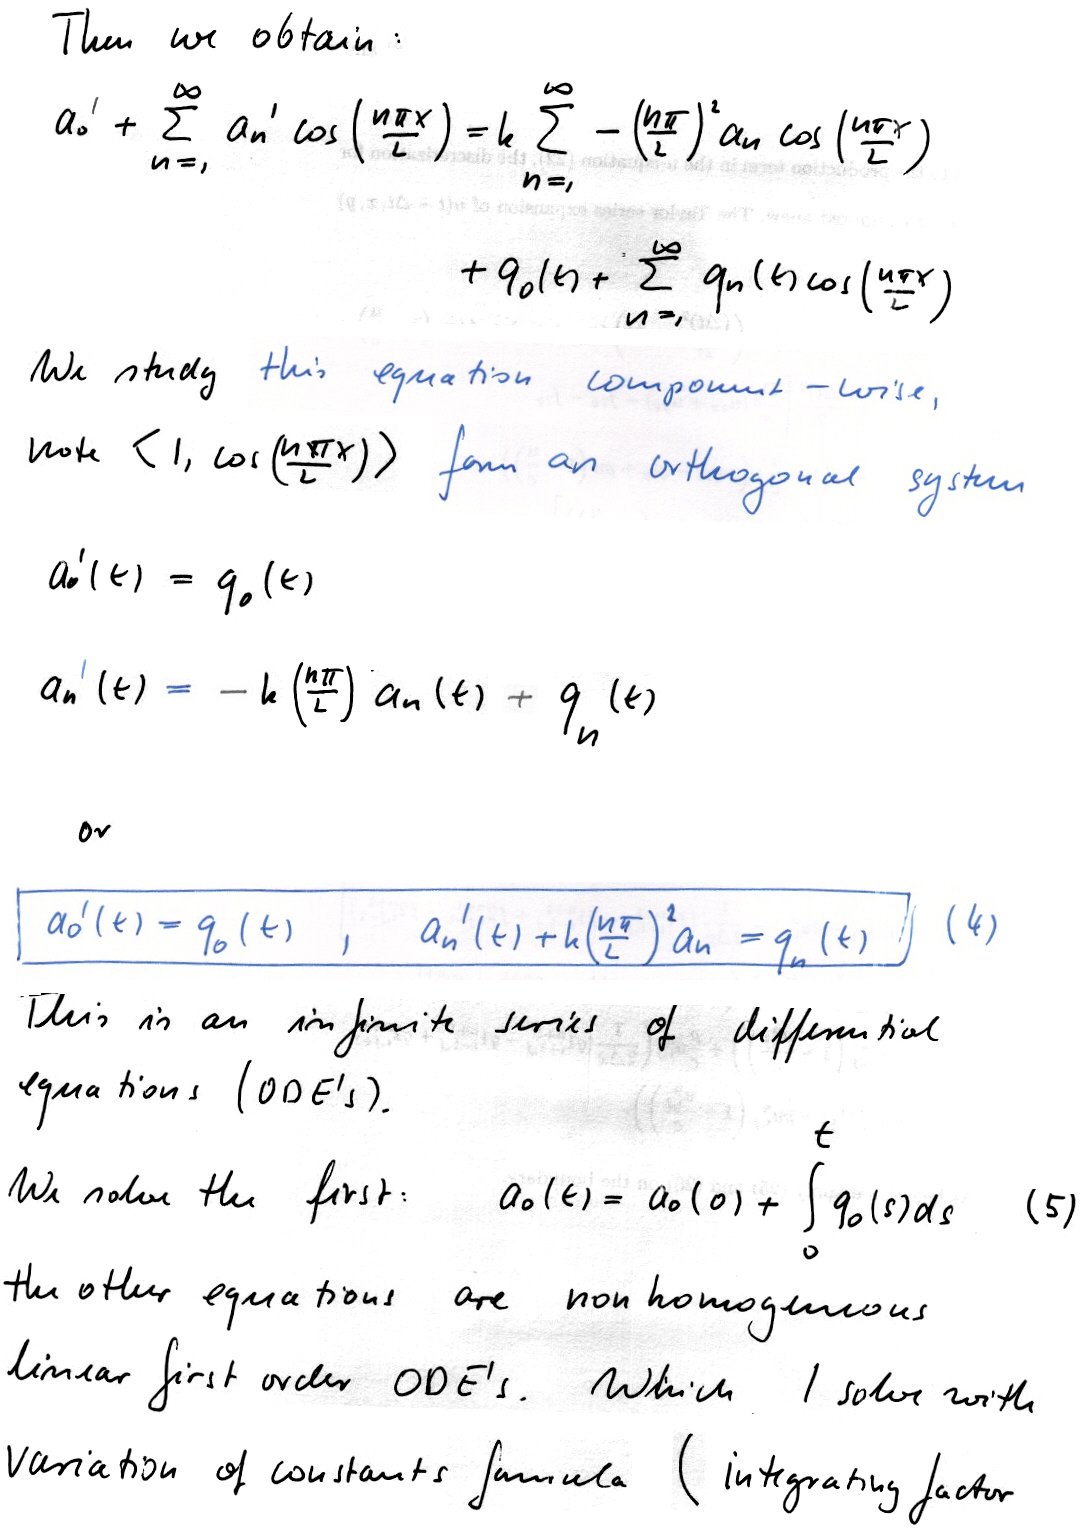 Then we obtain:
a₀' + ∑_{n=1}^{∞} aₙ' cos(nπx/L) = k ∑_{n=1}^{∞} -(nπ/L)² aₙ cos(nπx/L)
+ q₀(t) + ∑_{n=1}^{∞} qₙ(t) cos(nπx/L)
We study this equation component-wise,
note <1, cos(nπx/L)> form an orthogonal system
a₀'(t) = q₀(t)
aₙ'(t) = -k (nπ/L) aₙ(t) + qₙ(t)
or
a₀'(t) = q₀(t) , aₙ'(t) + k(nπ/L)² aₙ = qₙ(t) (4)
This is an infinite series of differential
equations (ODE's).
We solve the first: a₀(t) = a₀(0) + ∫₀ᵗ q₀(s)ds (5)
the other equations are nonhomogeneous
linear first order ODE's. Which I solve with
variation of constants formula (integrating factor